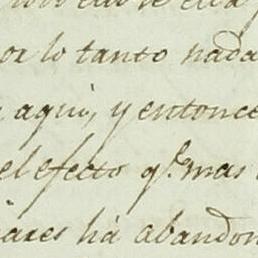 or lo tanto nada
aqui, y entonce
el efecto q.e mas
iares há abandon